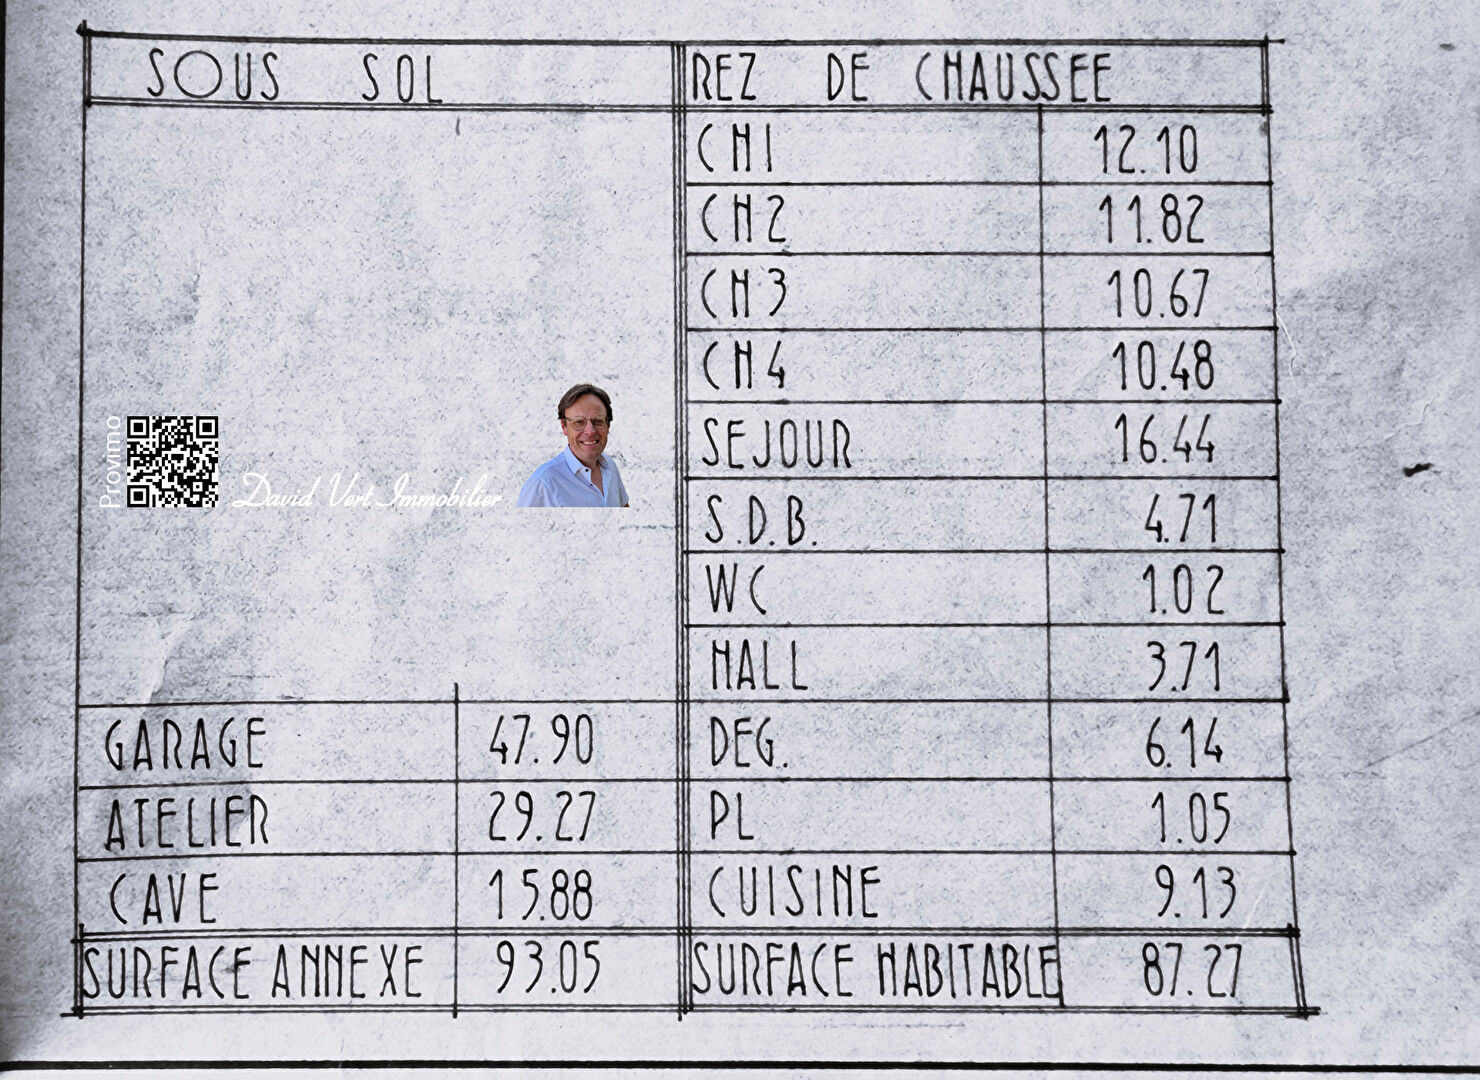 SOUS SOL
REZ DE CHAUSSEE
CH1 12.10
CH2 11.82
CH3 10.67
CH4 10.48
SEJOUR 16.44
S.D.B. 4.71
WC 1.02
HALL 3.71
Provimo
David Vert Immobilier
GARAGE 47.90
DEG. 6.14
ATELIER 29.27
PL 1.05
CAVE 15.88
CUISINE 9.13
SURFACE ANNEXE 93.05
SURFACE HABITABLE 87.27